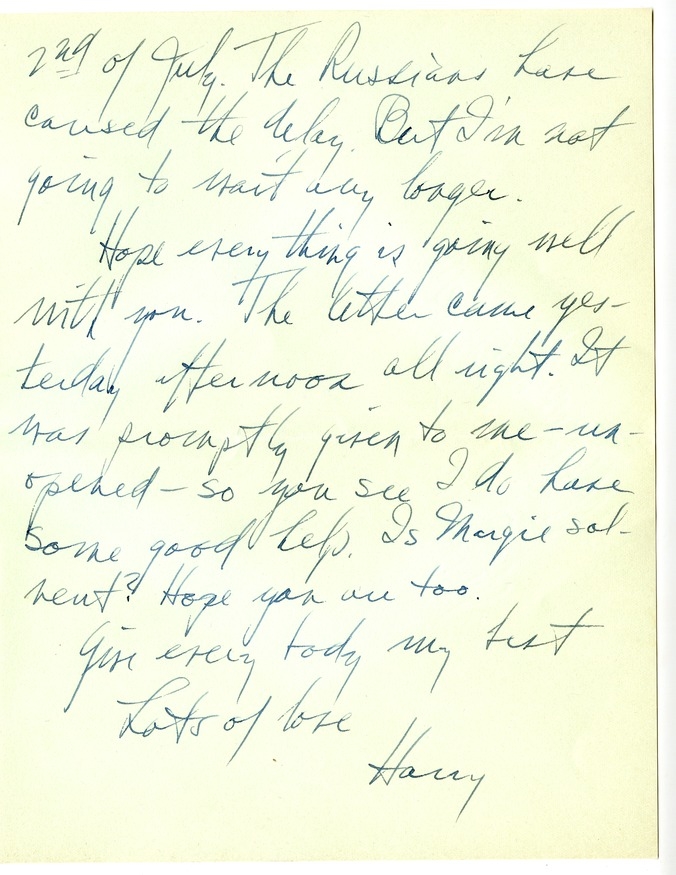 2nd of July. The Russians have
caused the delay. But I'm not
going to wait any longer.
Hope every thing is going well
with you. The letter came yes-
terday afternoon all right. It
was promptly given to me - un-
opened - so you see I do have
some good help. Is Margie sol-
vent? Hope you are too.
Give every body my best
Lots of love
Harry